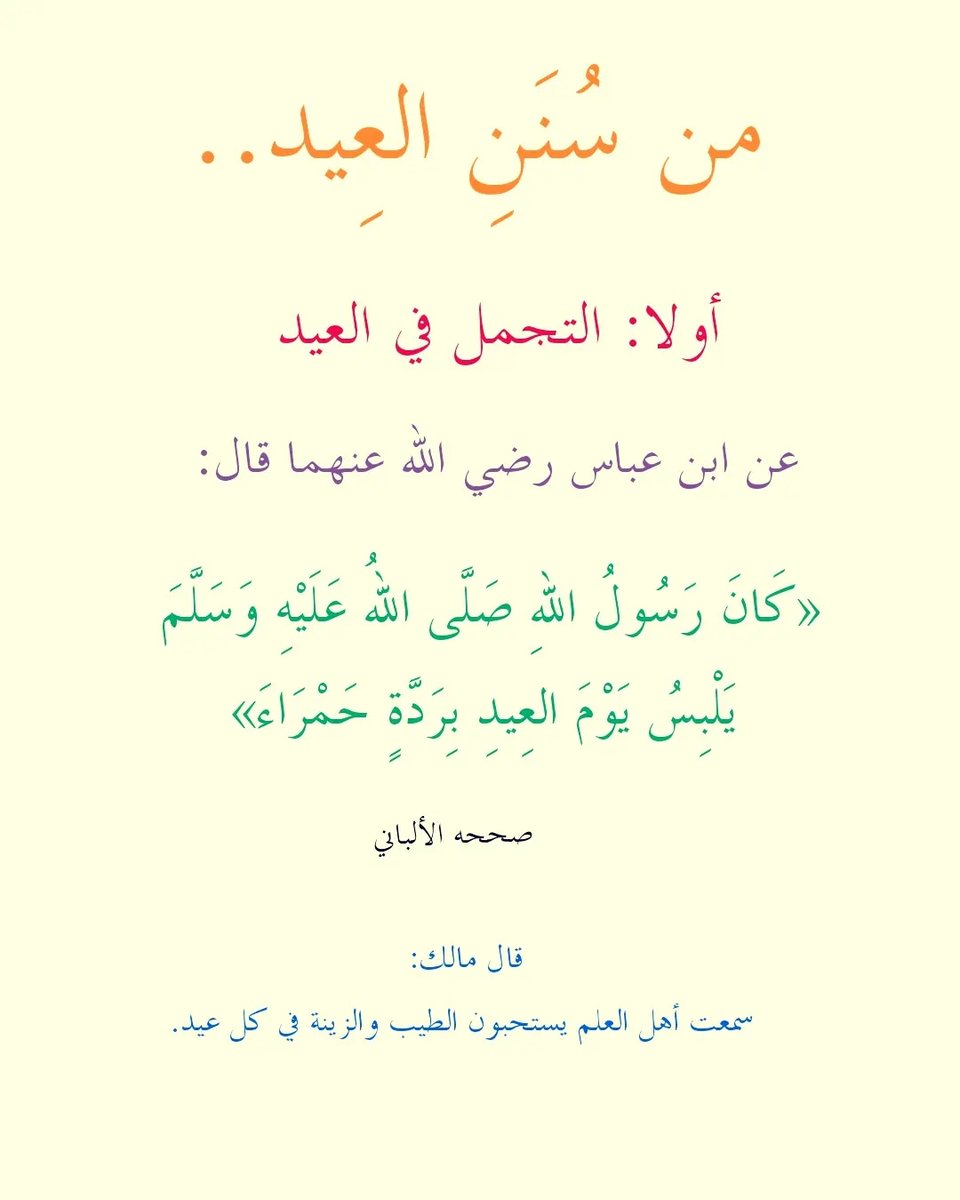 من سُنَنِ العِيد..
أولا: التجمل في العيد
عن ابن عباس رضي الله عنهما قال:
«كَانَ رَسُولُ اللهِ صَلَّى اللهُ عَلَيْهِ وَسَلَّمَ
يَلْبِسُ يَوْمَ العِيدِ بِرَدَّةٍ حَمْرَاءَ»
صححه الألباني
قال مالك:
سمعت أهل العلم يستحبون الطيب والزينة في كل عيد.